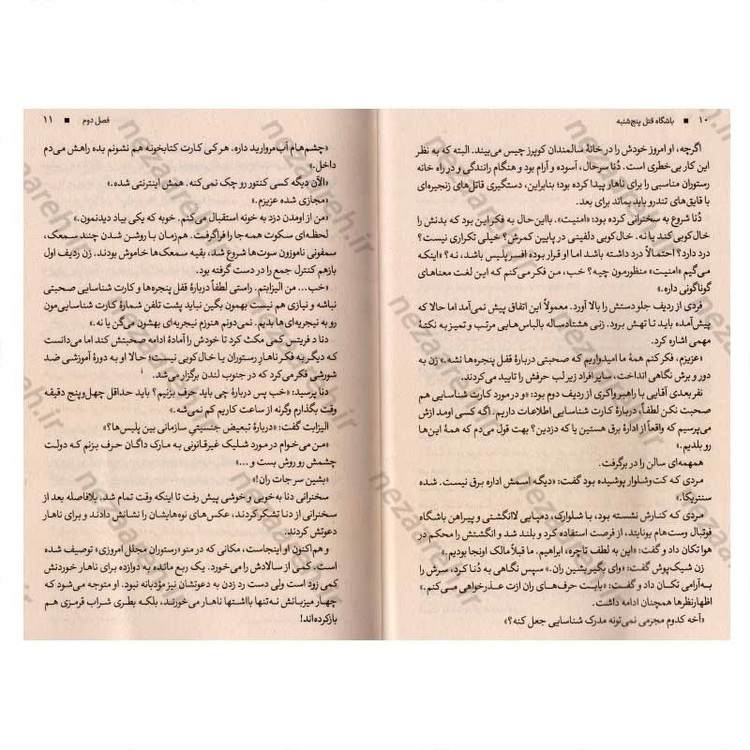 ۱۰ ■ باشگاه قتل پنج‌شنبه
اگرچه، او امروز خودش را در خانهٔ سالمندان کوپرز چیس می‌بیند. البته که به نظر
این کار بی‌خطری است. دُنا سرحال، آسوده و آرام بود و هنگام رانندگی و در راه خانه
رستوران مناسبی را برای ناهار پیدا کرده بود؛ بنابراین، دستگیری قاتل‌های زنجیره‌ای
با قایق‌های تندرو باید بماند برای بعد.
دُنا شروع به سخنرانی کرده بود: «امنیت». بااین‌حال به فکر این بود که بدنش را
خال‌کوبی کند یا نه. خال‌کوبی دلفینی در پایین کمرش؟ خیلی تکراری نیست؟
درد دارد؟ احتمالاً درد داشته باشد اما او قرار بود افسر پلیس باشد، نه؟ «اینکه
می‌گیم «امنیت» منظورمون چیه؟ خب، من فکر می‌کنم که این لغت معناهای
گوناگونی داره.»
فردی از ردیف جلو دستش را بالا آورد. معمولاً این اتفاق پیش نمی‌آمد اما حالا که
پیش‌آمده باید تا تهش برود. زنی هشتادساله بالباس‌هایی مرتب و تمیز به نکتهٔ
مهمی اشاره کرد.
«عزیزم، فکر کنم همهٔ ما امیدواریم که صحبتی دربارهٔ قفل پنجره‌ها نشه.» زن به
دور و برش نگاهی انداخت، سایر افراد زیر لب حرفش را تایید می‌کردند.
نفر بعدی آقایی با راهبر واکری از ردیف دوم بود: «و در مورد کارت شناسایی هم
صحبت نکن لطفاً، دربارهٔ کارت شناسایی اطلاعات داریم. اگه کسی اومد ازش
می‌پرسیم که واقعاً از ادارهٔ برق هستین یا که دزدین؟ بهت قول می‌دم که همهٔ این‌ها
رو بلدیم.»
همهمه‌ای سالن را در برگرفت.
مردی که کت‌وشلوار پوشیده بود گفت: «دیگه اسمش اداره برق نیست. شده
سنتریکا.»
مردی که کنارش نشسته بود، با شلوارک، دمپایی لاانگشتی و پیراهن باشگاه
فوتبال وست‌هام یونایتد، از فرصت استفاده کرد و بلند شد و انگشتش را محکم در
هوا تکان داد و گفت: «این به لطف تاچره، ابراهیم. ما قبلاً مالک اونجا بودیم.»
زن شیک‌پوش گفت: «وای بگیر بشین ران.» سپس نگاهی به دُنا کرد، سرش را
به‌آرامی تکان داد و گفت: «بابت حرف‌های ران ازت عذرخواهی می‌کنم.»
اظهارنظرها همچنان ادامه داشت.
«آخه کدوم مجرمی نمی‌تونه مدرک شناسایی جعل کنه؟»
فصل دوم ■ ۱۱
«چشم‌هام آب‌مروارید داره. هر کی کارت کتابخونه هم نشونم بده راهش می‌دم
داخل.»
«الآن دیگه کسی کنتور رو چک نمی‌کنه. همش اینترنتی شده.»
«مجازی شده عزیزم.»
«من از اومدن دزد به خونه استقبال می‌کنم. خوبه که یکی بیاد دیدنمون.»
لحظه‌ای سکوت همه‌جا را فراگرفت. هم‌زمان با روشن شدن چند سمعک،
سمفونی ناموزون سوت‌ها شروع شد، بقیه سمعک‌ها خاموش بودند، زن ردیف اول
بازهم کنترل جمع را در دست گرفته بود.
«خب... من الیزابتم. راستی لطفاً دربارهٔ قفل پنجره‌ها و کارت شناسایی صحبتی
نباشه و نیازی هم نیست بهمون بگین نباید پشت تلفن شمارهٔ کارت شناسایی‌مون
رو به نیجریه‌ای‌ها بدیم. نمی‌دونم هنوزم نیجریه‌ای بهشون می‌گن یا نه.»
دنا د فریتس کمی مکث کرد تا خودش را آمادهٔ ادامه صحبتش کند اما می‌دانست
که دیگر به فکر ناهارِ رستوران یا خال‌کوبی نیست؛ حالا او به دورهٔ آموزشی ضد
شورشی فکر می‌کرد که در جنوب لندن برگزار می‌شد.
دنا پرسید: «خب پس دربارهٔ چی باید حرف بزنیم؟ باید حداقل چهل‌وپنج دقیقه
وقت بگذارم وگرنه از ساعت کاریم کم نمی‌شه.»
الیزابت گفت: «دربارهٔ تبعیض جنسیتیِ سازمانی بین پلیس‌ها؟»
«من می‌خوام در مورد شلیک غیرقانونی به مارک داگان حرف بزنم که دولت
چشمش رو روش بست و ...»
«بشین سر جات ران!»
سخنرانی دنا به‌خوبی و خوشی پیش رفت تا اینکه وقت تمام شد، بلافاصله بعد از
سخنرانی از دنا تشکر کردند، عکس‌های نوه‌هایشان را نشانش دادند و برای ناهار
دعوتش کردند.
و هم‌اکنون او اینجاست، مکانی که در منو «رستوران مجلل امروزی» توصیف شده
است. کمی از سالادش را می‌خورد. یک ربع مانده به دوازده برای ناهار خوردنش
کمی زود است ولی دست رد زدن به دعوتشان نیز مؤدبانه نبود. او متوجه می‌شود که
چهار میزبانش نه‌تنها بااشتها ناهار می‌خورند، بلکه بطری شراب قرمزی هم
بازکرده‌اند!
nezaareh.ir